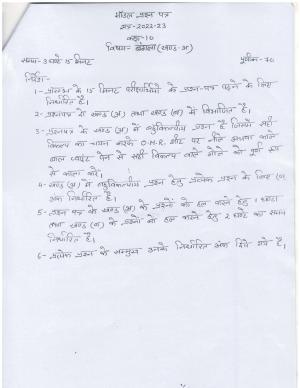 मॉडल प्रश्न पत्र
सत्र-2022-23
कक्षा-10
विषय- (खण्ड-अ)
समय-3 घण्टे 15 मिनट पूर्णांक-70
निर्देश-
1- प्रारम्भ के 15 मिनट परीक्षार्थियों को प्रश्न-पत्र पढ़ने के लिए
निर्धारित है।
2- प्रश्नपत्र दो खण्ड (अ) तथा खण्ड (ब) में विभाजित है।
3- प्रश्नपत्र के खण्ड (अ) में बहुविकल्पीय प्रश्न हैं जिसमें सही
विकल्प का चयन करके O.M.R. शीट पर नीले अथवा काले
बाल प्वाइंट पेन से सही विकल्प वाले गोले को पूर्ण रूप
से काला करें।
4- खण्ड (अ) में बहुविकल्पीय प्रश्न हेतु प्रत्येक प्रश्न के लिए 01
अंक निर्धारित है।
5- प्रश्न पत्र के खण्ड (अ) के प्रश्नों को हल करने हेतु 1 घण्टा
तथा खण्ड (ब) के प्रश्नों को हल करने हेतु 2 घण्टे का समय
निर्धारित है।
6- प्रत्येक प्रश्न के सम्मुख उनके निर्धारित अंक दिये गये हैं।